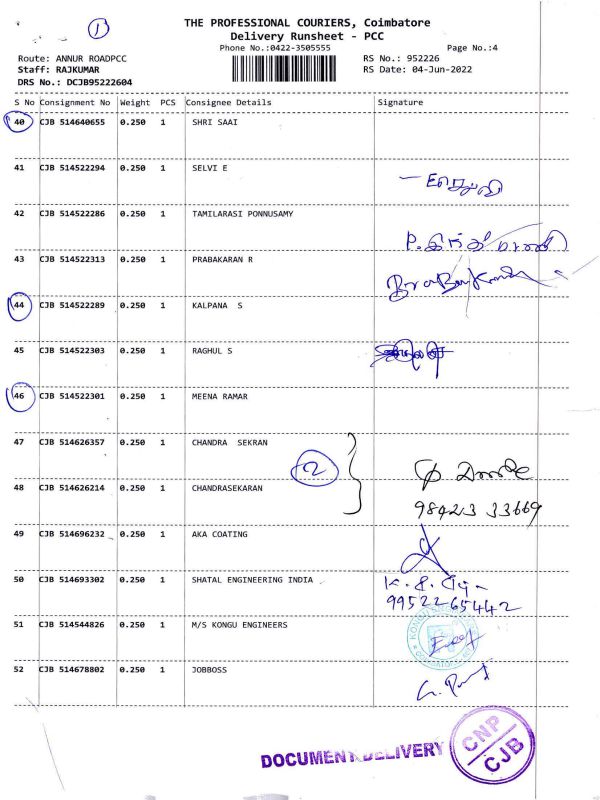 1
THE PROFESSIONAL COURIERS, Coimbatore
Delivery Runsheet - PCC
Phone No.:0422-3505555 Page No.:4
Route: ANNUR ROADPCC RS No.: 952226
Staff: RAJKUMAR RS Date: 04-Jun-2022
DRS No.: DCJB95222604
S No Consignment No Weight PCS Consignee Details Signature
40 CJB 514640655 0.250 1 SHRI SAAI
41 CJB 514522294 0.250 1 SELVI E
42 CJB 514522286 0.250 1 TAMILARASI PONNUSAMY
43 CJB 514522313 0.250 1 PRABAKARAN R
44 CJB 514522289 0.250 1 KALPANA S
45 CJB 514522303 0.250 1 RAGHUL S
46 CJB 514522301 0.250 1 MEENA RAMAR
47 CJB 514626357 0.250 1 CHANDRA SEKRAN
2
48 CJB 514626214 0.250 1 CHANDRASEKARAN
98423 33669
49 CJB 514696232 0.250 1 AKA COATING
50 CJB 514693302 0.250 1 SHATAL ENGINEERING INDIA
99522 65442
51 CJB 514544826 0.250 1 M/S KONGU ENGINEERS
52 CJB 514678802 0.250 1 JOBBOSS
DOCUMENT DELIVERY
CNP
CJB